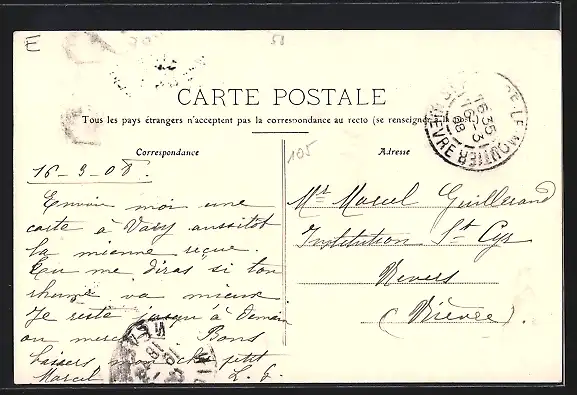 E
58
CARTE POSTALE
Tous les pays étrangers n'acceptent pas la correspondance au recto (se renseigner à la post
Correspondance
105
Adresse
16-3-08.
Envoie moi une
carte à Vary aussitôt
la mienne reçue.
Tu me diras si ton
rhume va mieux
Je reste jusqu'à Demain
ou mercredi. Bons
baisers mon cher petit
Marcel L. G.
Mr Marcel Guillerand
Institution St Cyr
Nevers
(Nièvre).
LE MOUTIER
NIEVRE
16 35
16 -3
08